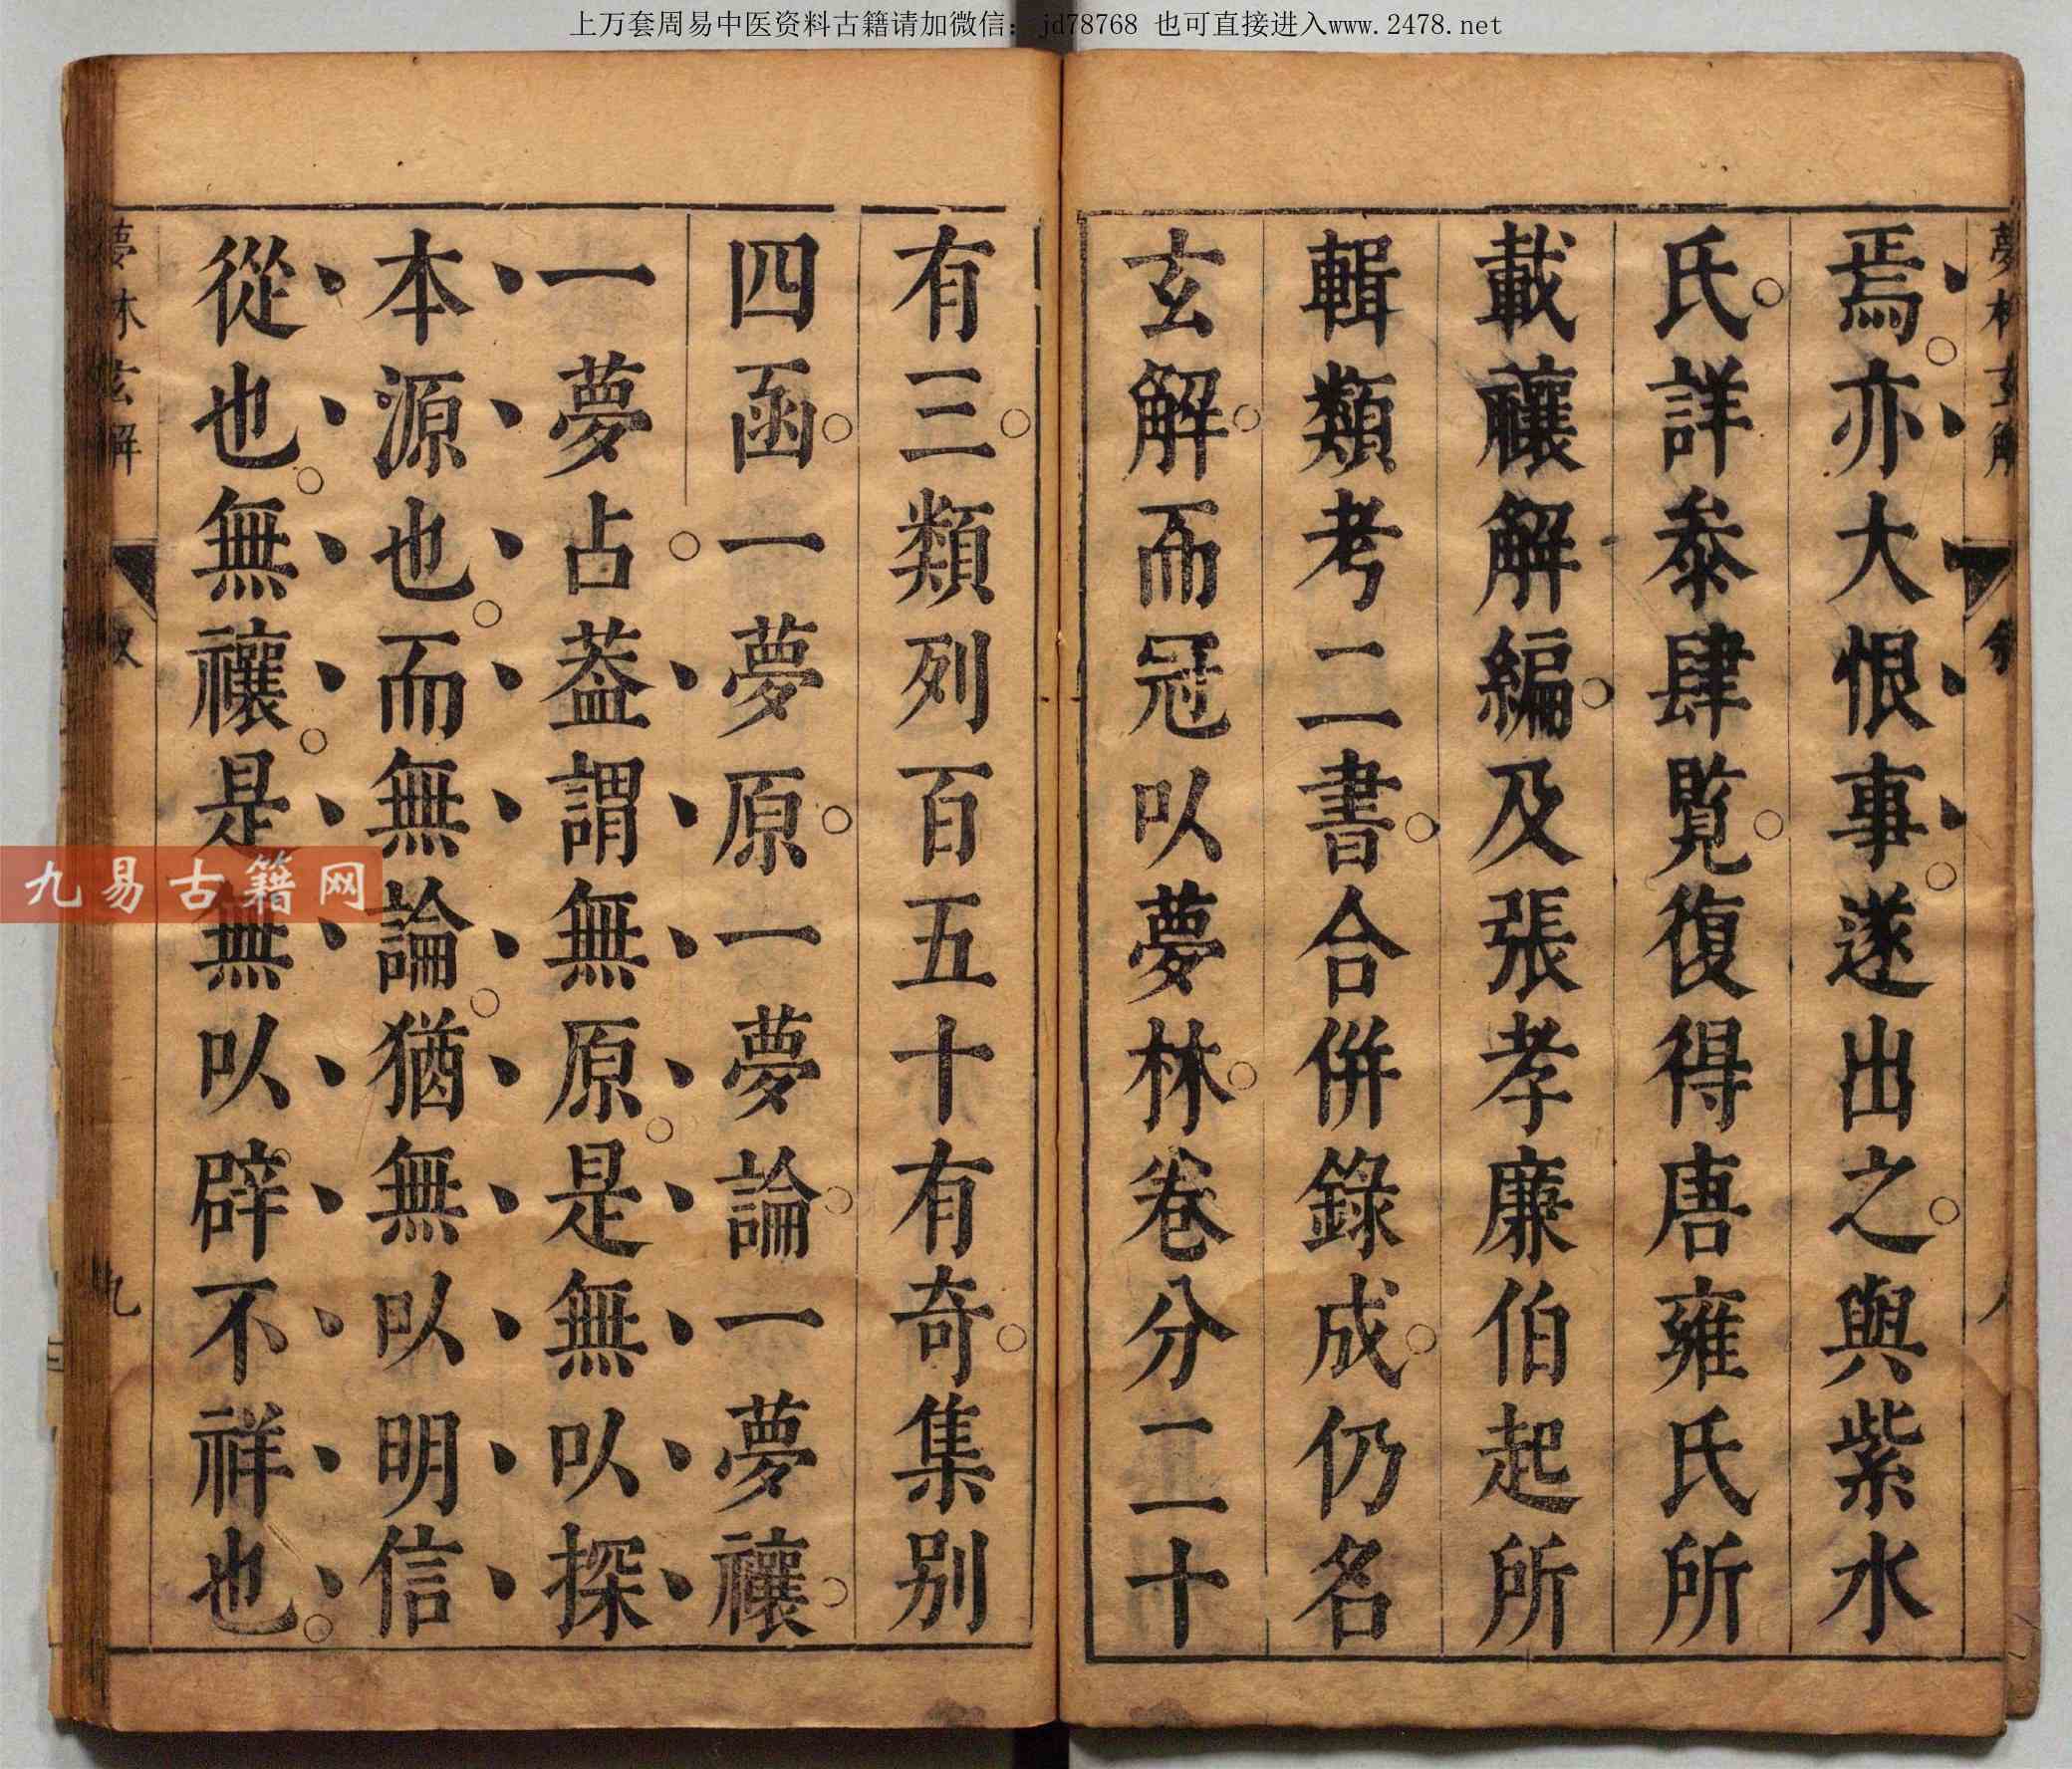 上万套周易中医资料古籍请加微信：jd78768 也可直接进入www.2478.net
夢林玄解
焉亦大恨事遂出之與紫水
氏詳叅肆覧復得唐雍氏所
載禳解編及張孝廉伯起所
輯類考二書合併錄成仍名
玄解而冠以夢林卷分二十
有三類列百五十有奇集别
四函一夢原一夢論一夢禳
一夢占葢謂無原是無以探
本源也而無論猶無以明信
從也無禳是無以辟不祥也
夢林玄解
九
九易古籍网